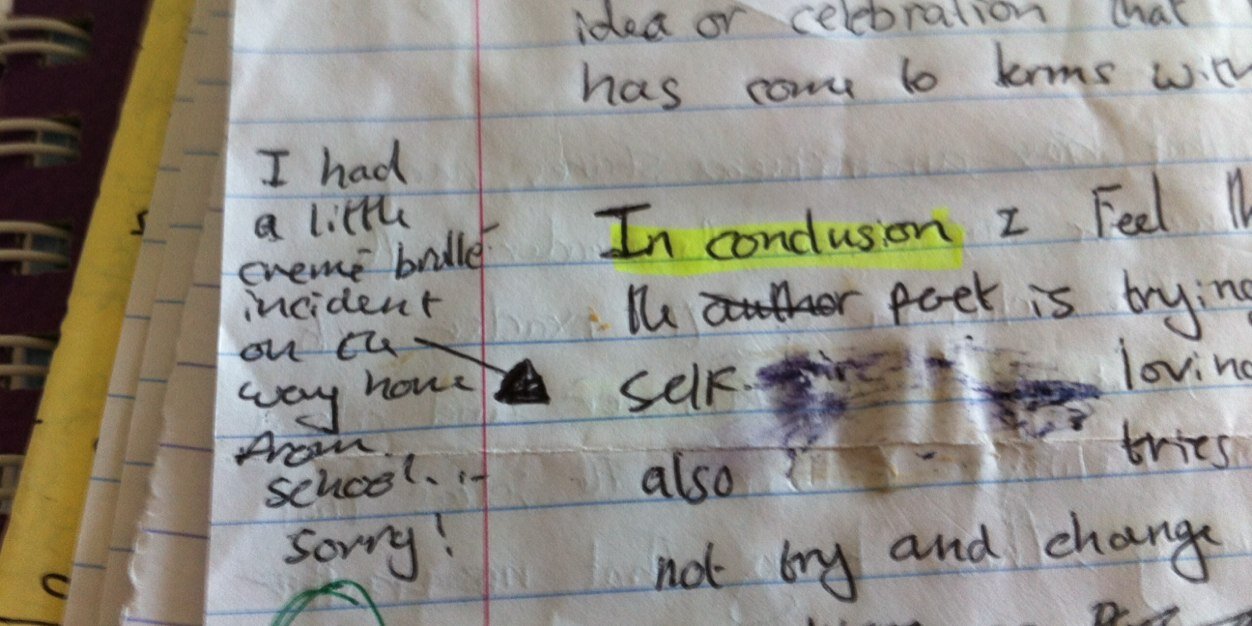 idea or celebration that
has come to terms with
I had
a little
cremé brullé
incident
on the
way home
from
school..
sorry!
In conclusion I Feel
the author poet is trying
self. loving
also tries
not try and change